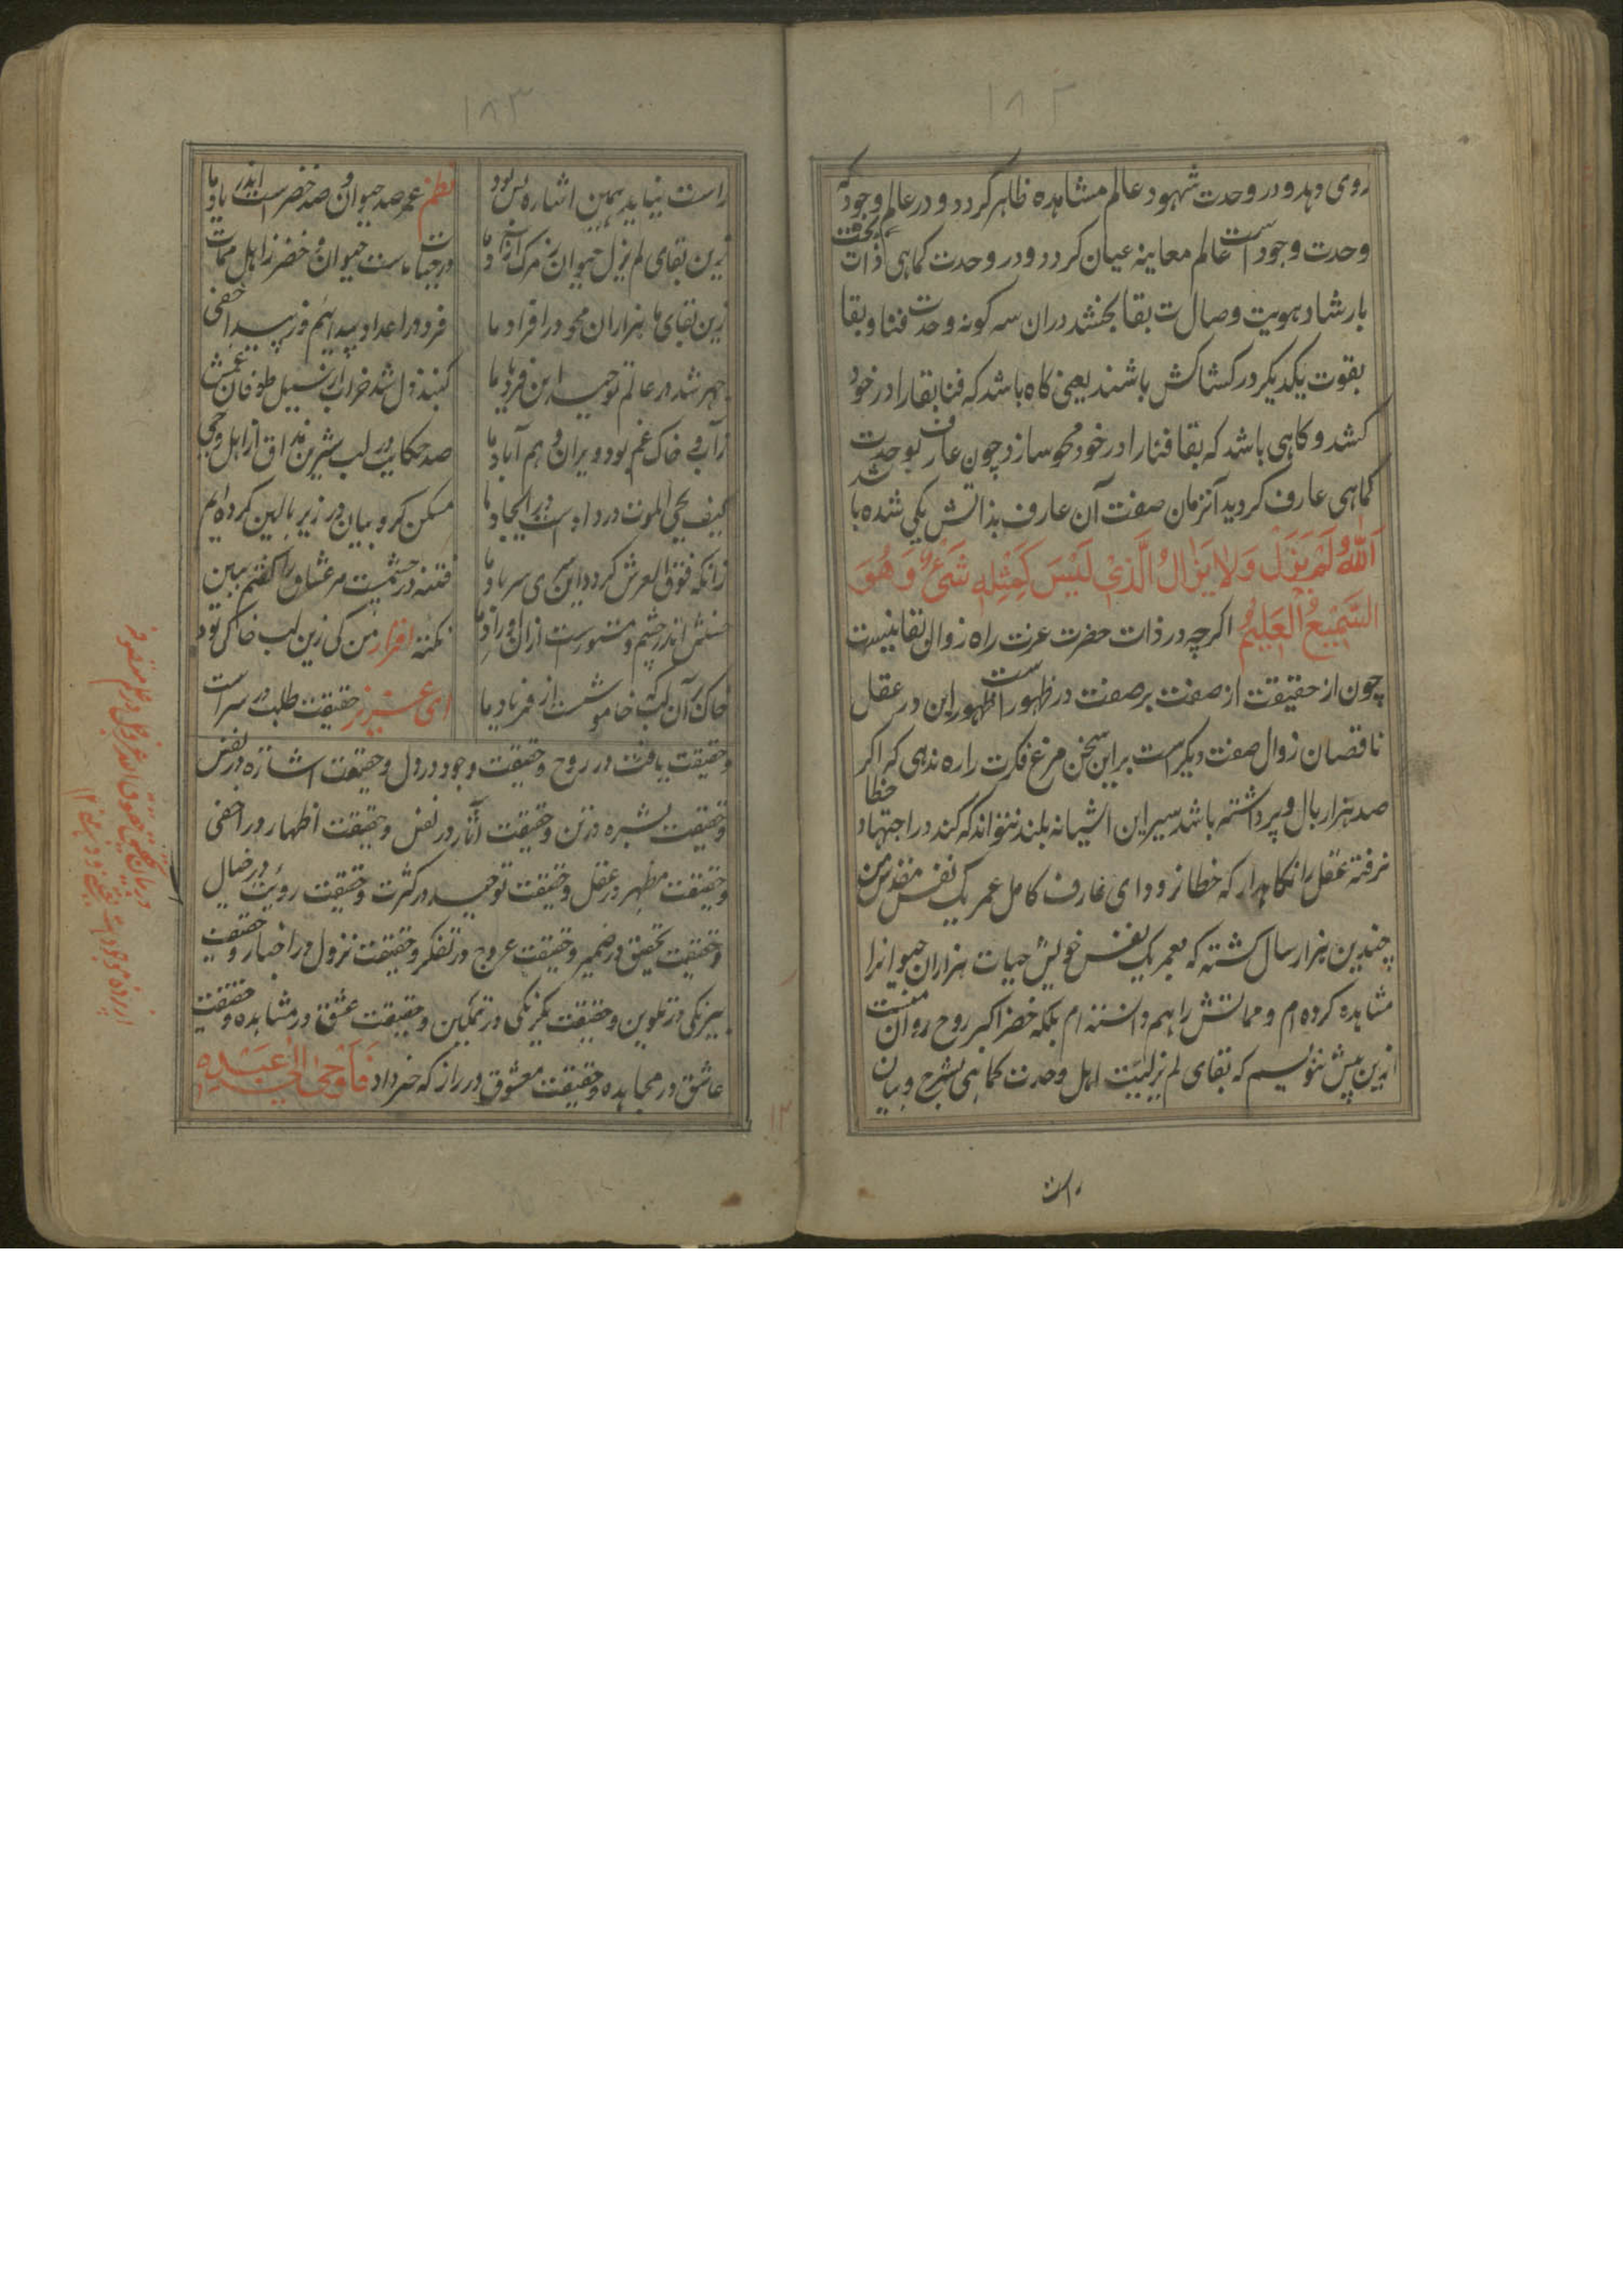 ۱۸۲
روی دهد و در وحدت شهود عالم مشاهده ظاهر کردد و در عالم وجود که
وحدت وجود است عالم معاینه عیان کردد و در وحدت کماهی ذات بحقت
بارشاد هویت وصال ت بقا بخشد دران سه کونه وحدت فنا و بقا
بقوت یکدیکر در کشاکش باشند یعنی کاه باشد که فنا بقا را در خود
کشد و کاهی باشد که بقا فنا را در خود محو سازد چون عارف بوحدت
کماهی عارف کردید آنزمان صفت آن عارف بذاتش یکی شده با شد
اَللّٰهُ لَمْ یَزَلْ وَلا یَزٰالُ الَّذِی لَیْسَ کَمِثْلِهٖ شَیْءٌ وَهُوَ
السَّمِیْعُ الْعَلِیْمُ اکرچه در ذات حضرت عزت راه زوال و بقا نیست
چون از حقیقت از صفت بر صفت در ظهور است اظهور این در عقل
ناقصان زوال صفت دیکرست براین سخن مرغ فکرت را ره ندهی که اکر
صد هزار بال و پر داشته باشد سیر این اشیانه بلند نتواند که کند در اجتهاد خطا
نرفته عقل را نکاهدار که خطا نرود ای عارف کامل عمر یک نفس مقدس من
چندین هزار سال کشته که بعمر یک نفس خویش حیات هزاران حیوانرا
مشاهده کرده ام و مماتش را هم دانسته ام بلکه خضر اکبر روح روان منست
ازین پیش ننویسم که بقای لم یزلیت اهل وحدت کماهی بشرح و بیان
راست
۱۸۳
راست نیاید همین اشاره بس بود نظم عمر صد حیوان و صد خضر است اندر یاد ما
زین بقای لم یزل حیوان ز مرک آزاد ما در حیات ماست حیوان و خضر ز اهل ممات
زین بقای ما هزاران محو در افراد ما فرد در اعداد پیدائیم و ز پیدا خفی
جهر شد در عالم توحید این فریاد ما کنبد دل شد خراب از سیل طوفان غمش
ز آب و خاک غم بود ویران و هم آباد ما صد حکایت در لب شیرین مذاق از اهل وحی
کیف یحی الموت در داد است در ایجاد ما مسکن کروبیان در زیر بالین کرده ایم
زانکه فوق العرش کردد این سری سر باد ما فتنه در چشمیست مر عشاق را کفتم ببین
اندر چشم و مستورست ازان اوراد ما نکته اقرار من کی زین لب خاکی بود
خاک آن لب که خاموشست از فریاد ما ای عزیز حقیقت طلب در سر است
و حقیقت یافت در روح و حقیقت وجود در دل و حقیقت اشاره در نفس
و حقیقت بشره در تن و حقیقت آثار در نفس و حقیقت اظهار در اخفی
و حقیقت مظهر در عقل و حقیقت توحید در کثرت و حقیقت رویت در خیال
و حقیقت تحقیق در ضمیر و حقیقت عروج در تفکر و حقیقت نزول در اخبار و حقیقت
بیرنکی در تلوین و حقیقت یکرنکی در تمکین و حقیقت عشق در مشاهده و حقیقت
عاشق در مجاهده و حقیقت معشوق در راز که خبر داد فَاَوْحٰی اِلٰی عَبْدِهٖ